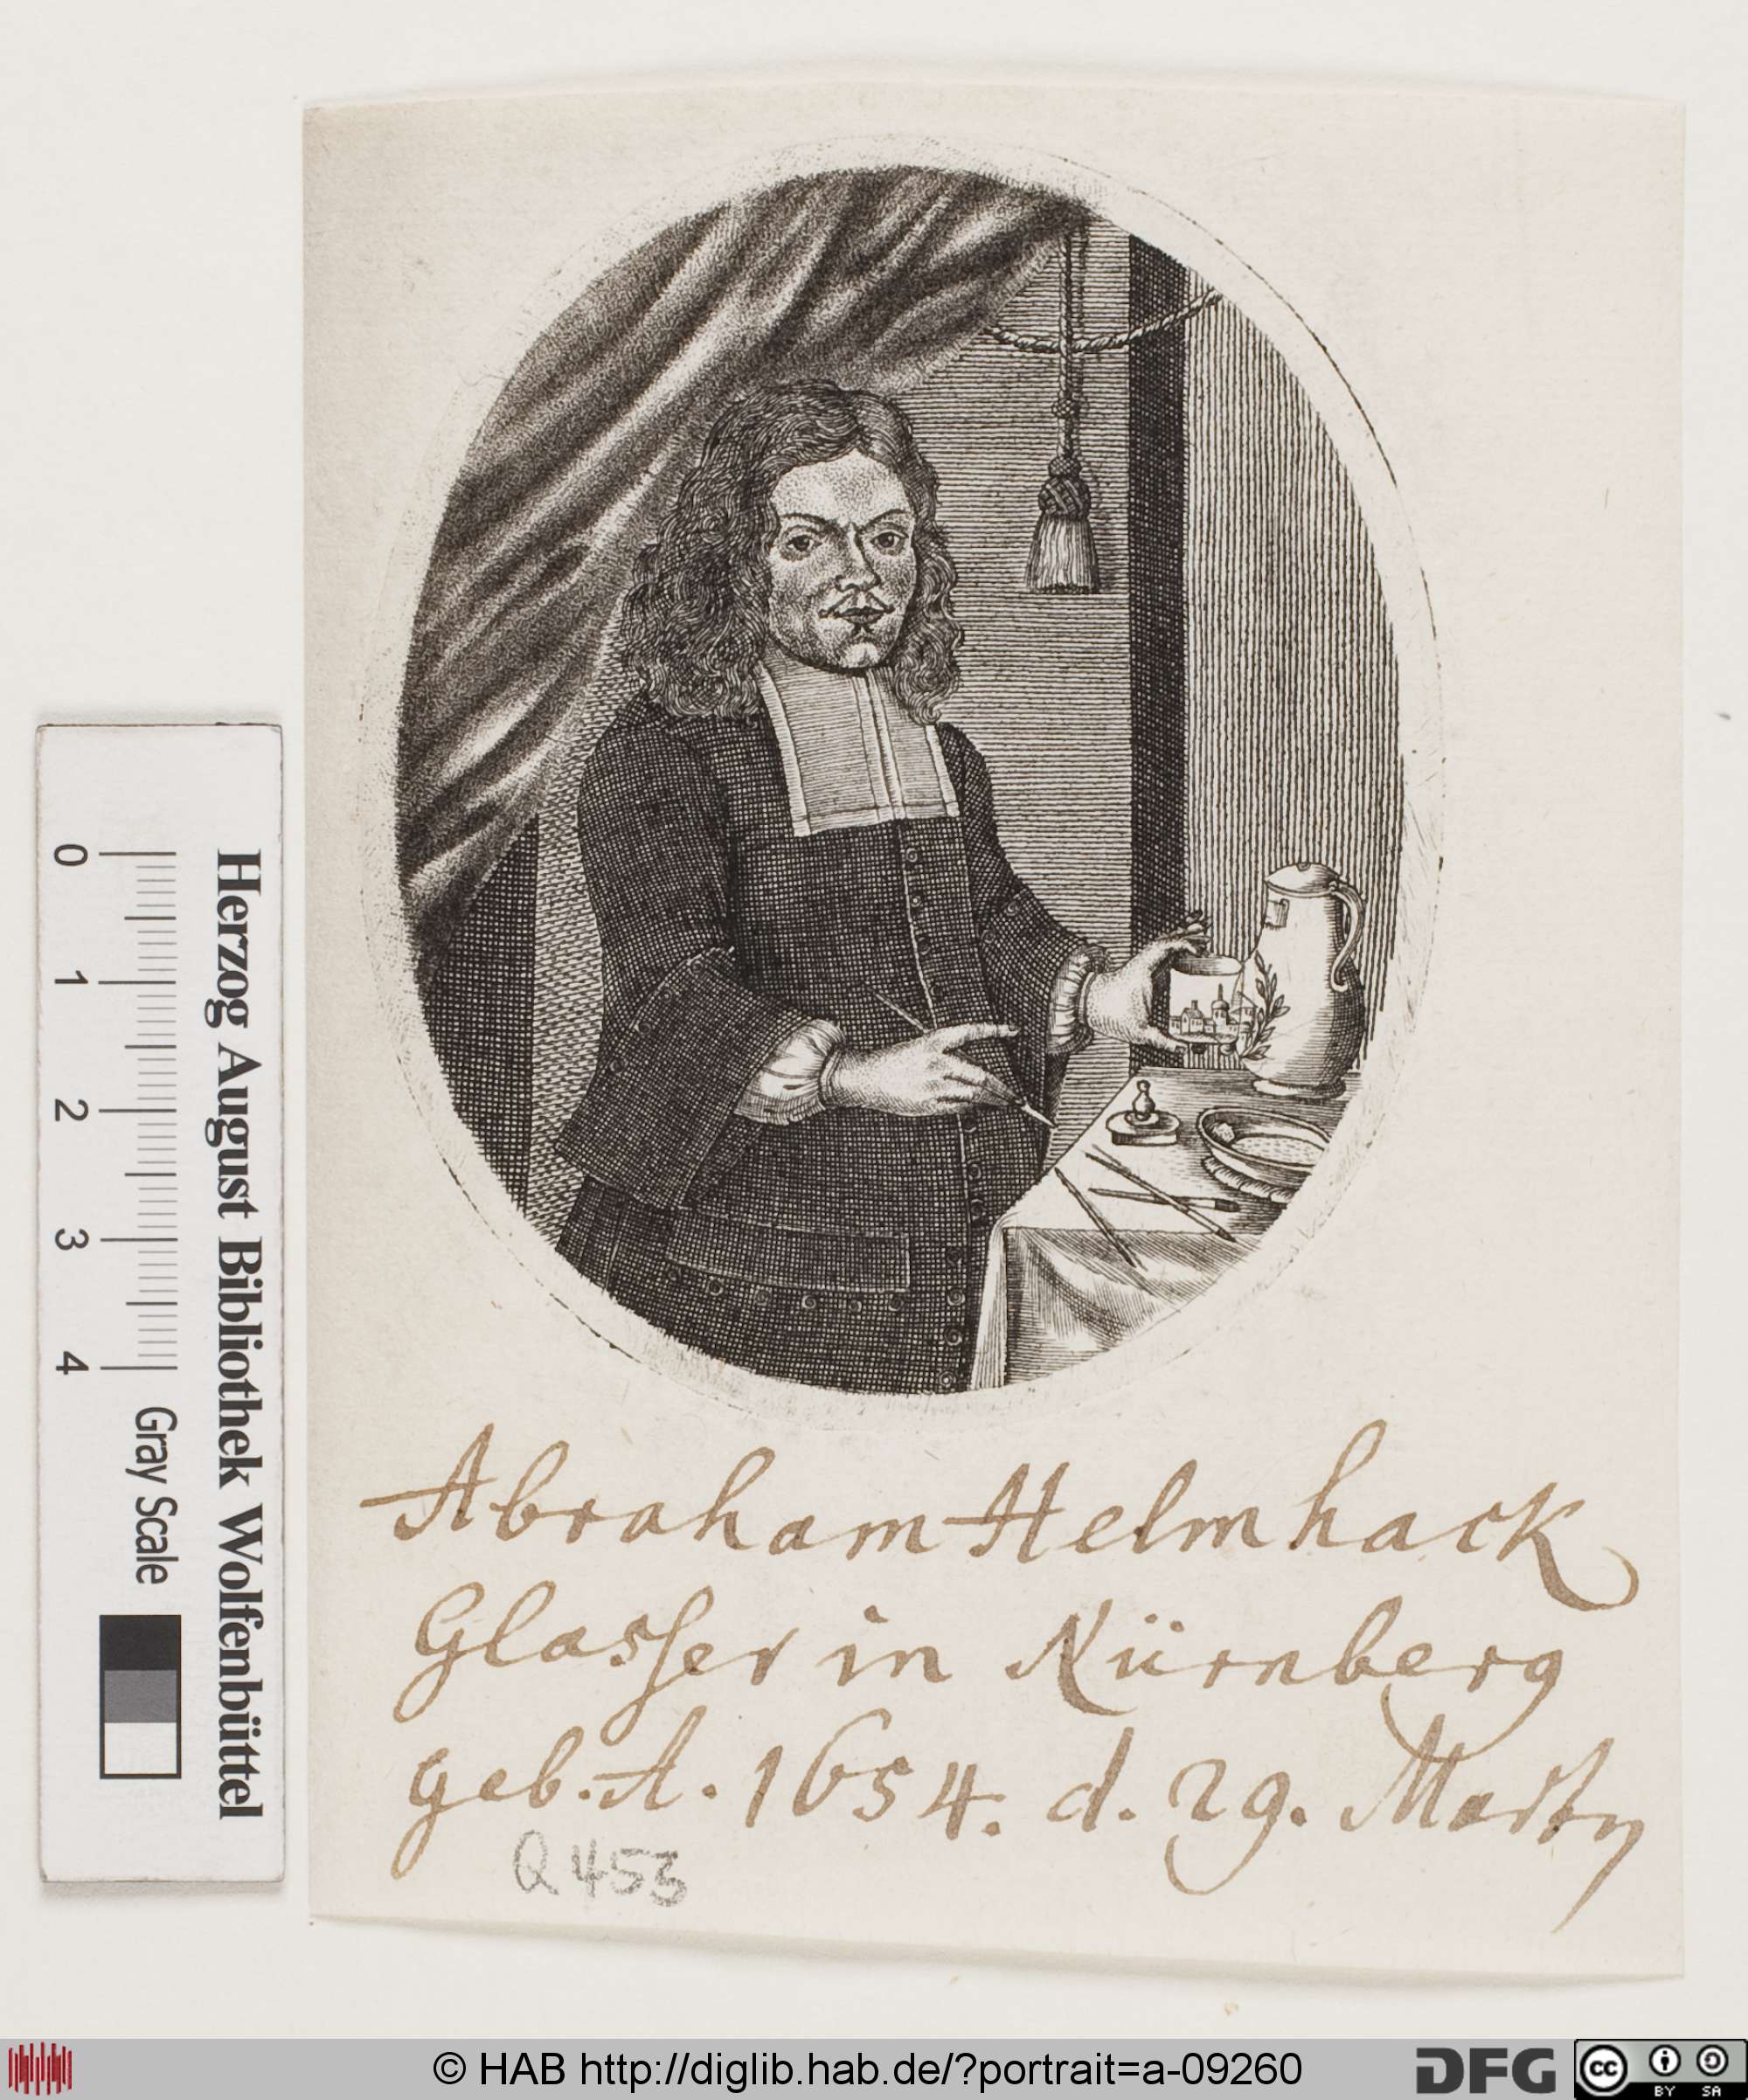 Abraham Helmhack
Glasser in Nürnberg
geb. A. 1654. d. 29. Marty
Q 453
Herzog August Bibliothek Wolfenbüttel
0 1 2 3 4 Gray Scale
© HAB http://diglib.hab.de/?portrait=a-09260
DFG
cc BY SA